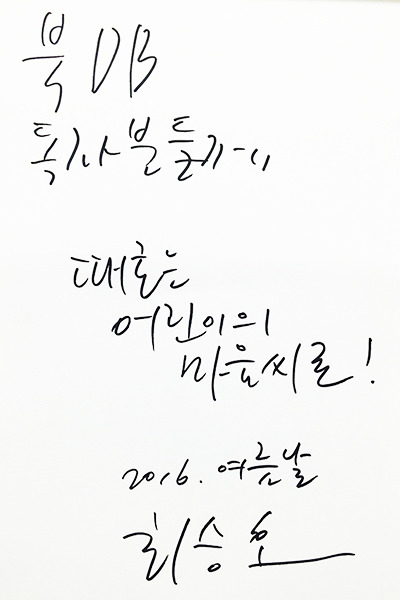 북DB
독자분들께..
때로는
어린이의
마음씨로!
2016. 여름날
최승호